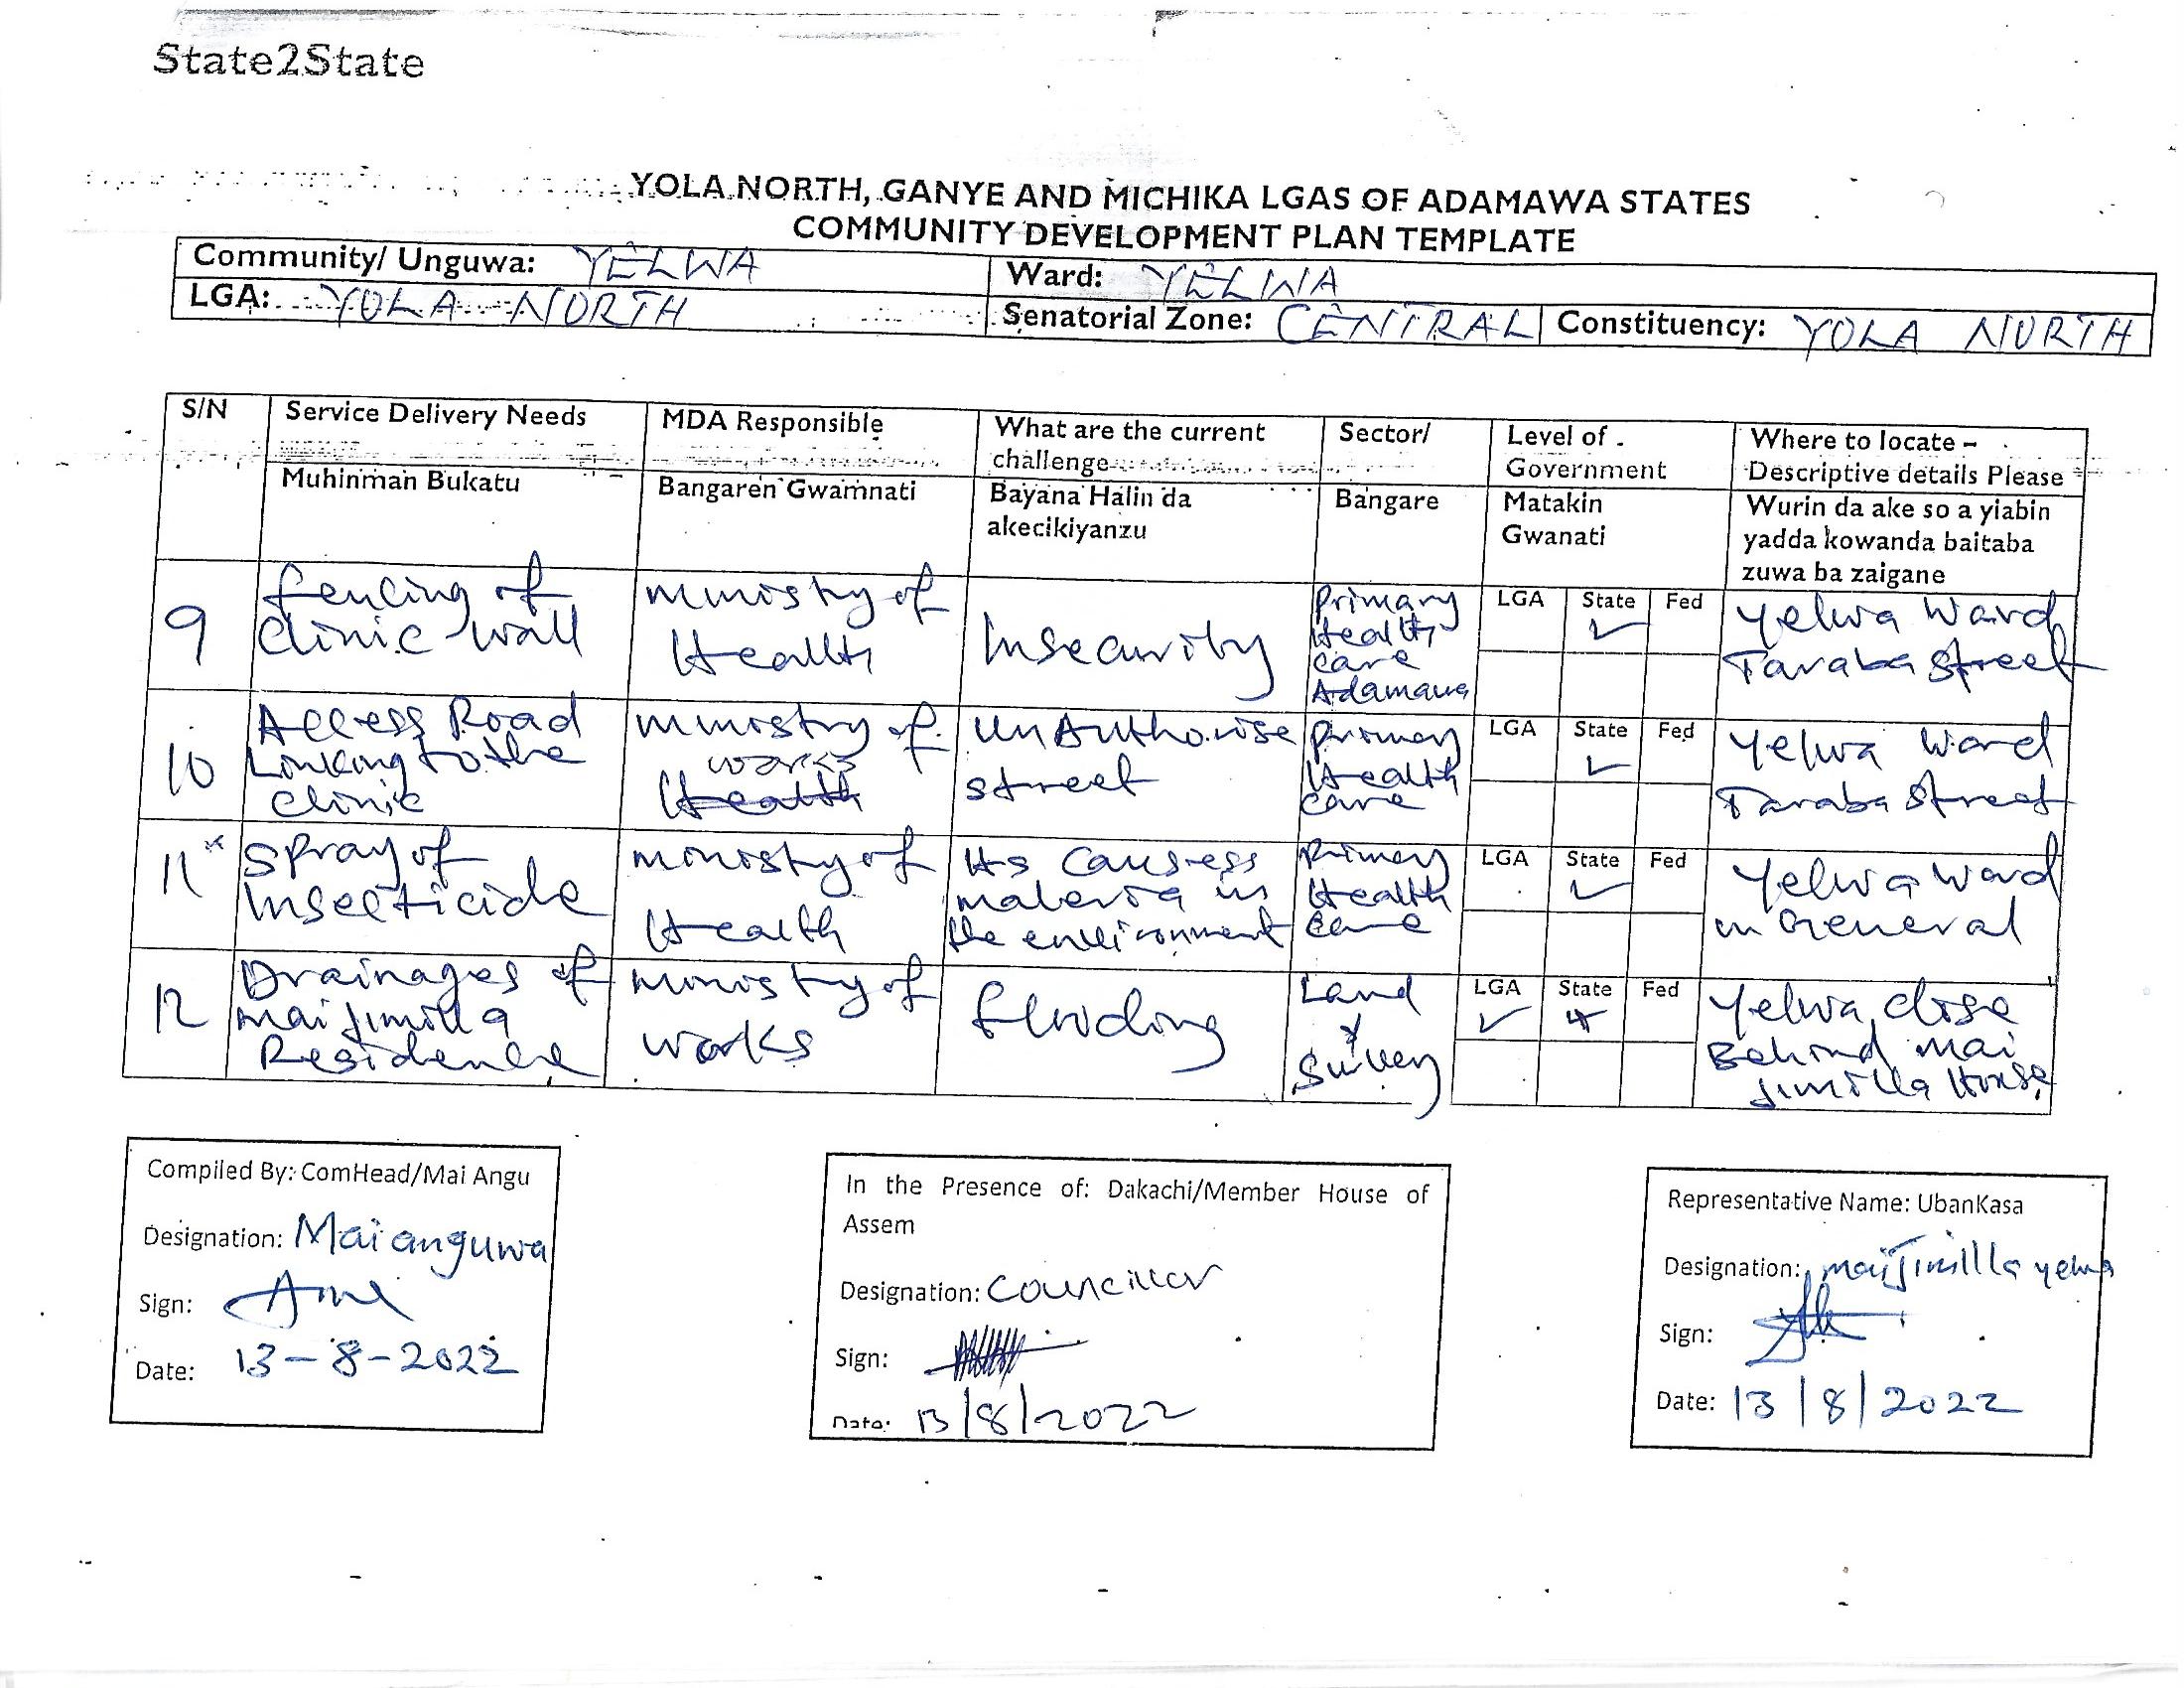 State2State
YOLA NORTH, GANYE AND MICHIKA LGAS OF ADAMAWA STATES
COMMUNITY DEVELOPMENT PLAN TEMPLATE
Community/ Unguwa: YELWA
Ward: YELWA
LGA: YOLA NORTH
Senatorial Zone: CENTRAL
Constituency: YOLA NORTH
S/N
Service Delivery Needs
MDA Responsible
What are the current
challenge
Sector/
Level of
Government
Where to locate –
Descriptive details Please
Muhinman Bukatu
Bangaren Gwamnati
Bayana Halin da
akecikiyanzu
Bangare
Matakin
Gwanati
Wurin da ake so a yiabin
yadda kowanda baitaba
zuwa ba zaigane
9
fencing of
clinic wall
ministry of
Health
Insecurity
Primary
Health
care
Adamawa
LGA State Fed
✓
Yelwa Ward
Taraba Street
10
Access Road
Linking to the
clinic
ministry of
works
Health
unAuthorise
street
Primary
Health
care
LGA State Fed
✓
Yelwa Ward
Taraba Street
11
Spray of
Insecticide
ministry of
Health
Its Causess
maleria in
the environment
Primary
Health
care
LGA State Fed
✓
Yelwa Ward
in General
12
Drainages of
mai jimilla
Residence
ministry of
works
flooding
Land
&
Survey
LGA State Fed
✓
Yelwa close
Behind mai
jimilla House
Compiled By: ComHead/Mai Angu
Designation: Mai anguwa
Sign:
Date: 13-8-2022
In the Presence of: Dakachi/Member House of
Assem
Designation: Councillor
Sign:
Date: 13/8/2022
Representative Name: UbanKasa
Designation: mai Jimilla yelwa
Sign:
Date: 13/8/2022